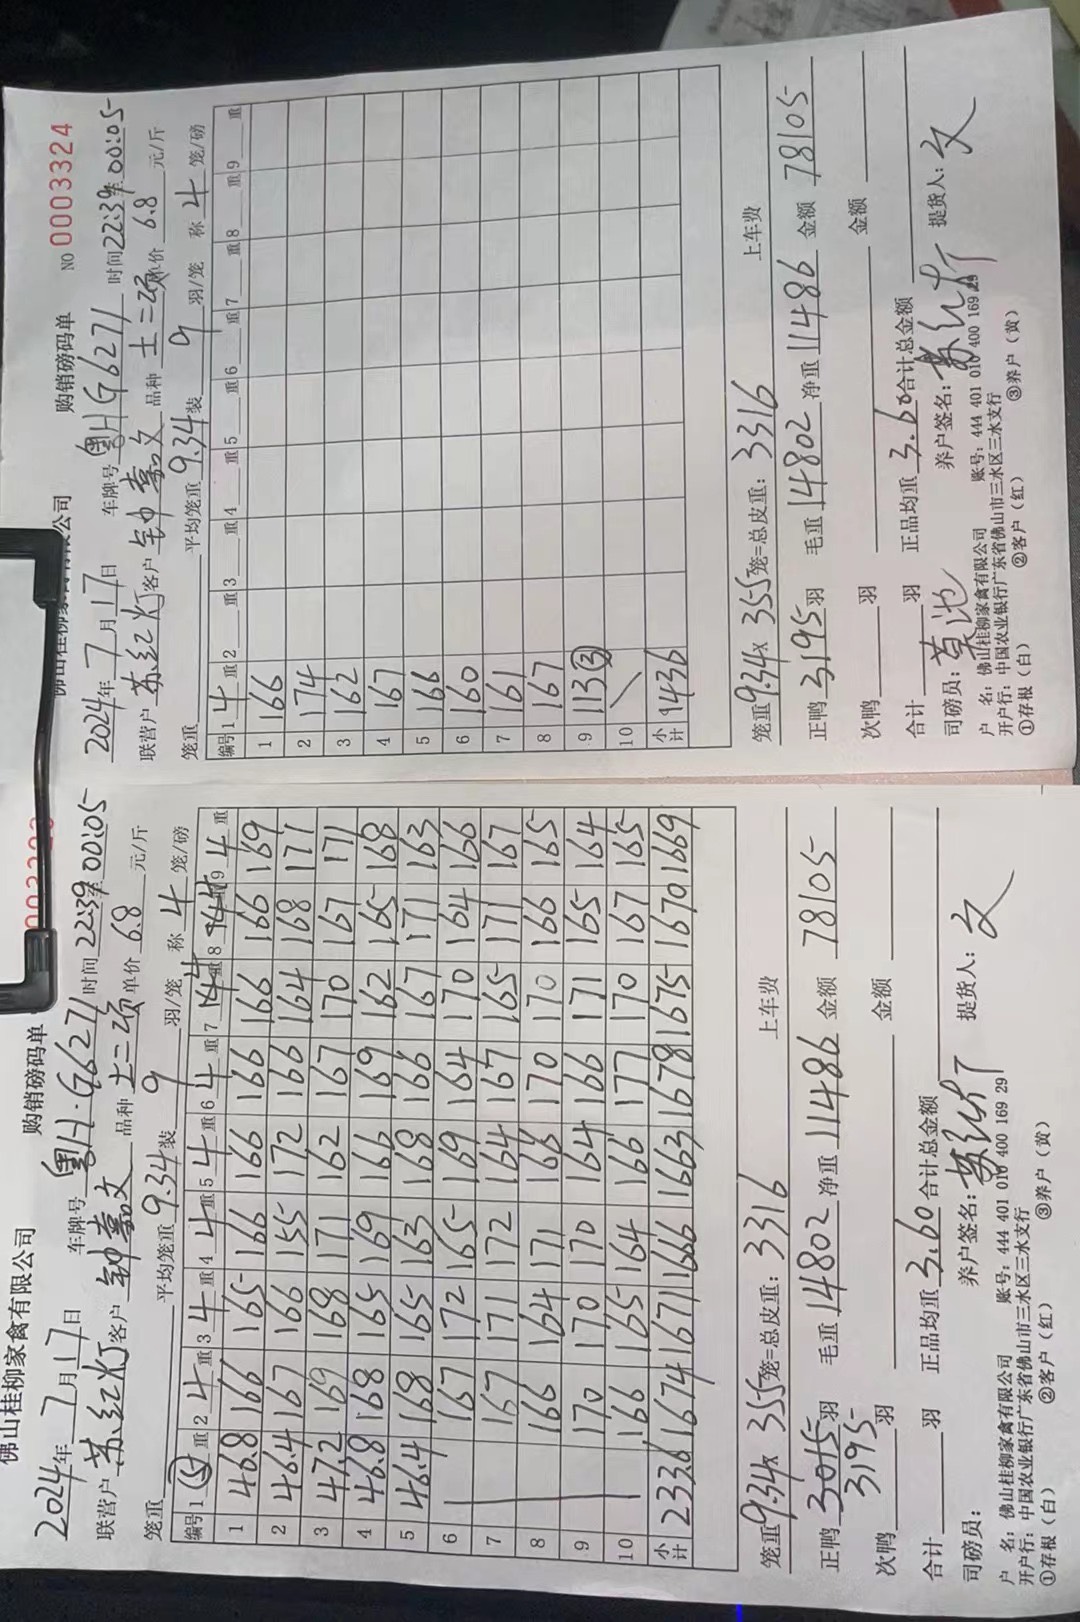 佛山桂柳家禽有限公司 购销磅码单
2024年7月17日 车牌号粤H·G6271 时间22:39至00:05
联营户苏红灯客户钟嘉文 品种土二项单价6.8元/斤
笼重 平均笼重9.34装9羽/笼 称4笼/磅
编号 1 ⑤ 重 2 4 重 3 4 重 4 4 重 5 4 重 6 4 重 7 4 8 4 重 9 4 重
1 46.8 166 165 166 166 166 166 166 169
2 46.4 167 166 155 172 166 164 168 171
3 47.2 169 168 171 162 167 170 167 171
4 46.8 168 165 169 166 169 162 165 168
5 46.4 168 165 163 168 166 167 171 163
6 167 172 165 169 164 170 164 166
7 167 171 172 164 167 165 171 167
8 166 164 171 166 170 170 166 165
9 170 170 170 164 166 171 165 164
10 166 165 164 166 177 170 167 165
小计 233.6 1674 1671 1666 1663 1678 1675 1670 1669
笼重9.34x355笼=总皮重:3316 上车费
正鸭3015羽 毛重14802净重11486金额78105
3195
次鸭 羽 金额
合计 羽 正品均重3.60合计总金额
司磅员: 养户签名: 提货人:文
户 名:佛山桂柳家禽有限公司 账号:444 401 010 400 169 29
开户行:中国农业银行广东省佛山市三水区三水支行
①存根(白) ②客户(红) ③养户(黄)
公司 购销磅码单 NO 0003324
2024年7月17日 车牌号粤H G6271 时间22:39至00:05
联营户苏红灯客户钟嘉文 品种土二项单价6.8元/斤
笼重 平均笼重9.34装9羽/笼 称4笼/磅
编号 1 4 重 2 重 3 重 4 重 5 重 6 重 7 重 8 重 9 重
1 166
2 174
3 162
4 167
5 166
6 160
7 161
8 167
9 113③
10
小计 1436
笼重9.34x355笼=总皮重:3316 上车费
正鸭3195羽 毛重14802净重11486金额78105
次鸭 羽 金额
合计 羽 正品均重3.60合计总金额
司磅员: 养户签名: 提货人:文
户 名:佛山桂柳家禽有限公司 账号:444 401 010 400 169 29
开户行:中国农业银行广东省佛山市三水区三水支行
①存根(白) ②客户(红) ③养户(黄)